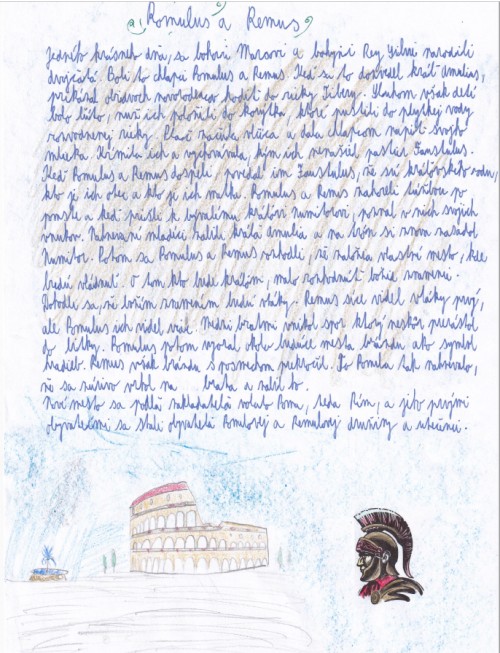 Romulus a Remus
Jedného krásneho dňa, sa bohovi Marsovi a bohyni Rey Silvii narodili
dvojičatá. Boli to chlapci Romulus a Remus. Keď sa to dozvedel kráľ Amulius,
prikázal obidvoch novorodencov hodiť do rieky Tibery. Sluhom však detí
bolo ľúto, nuž ich položili do korýtka, ktoré pustili do plytkej vody
rozvodnenej rieky. Plač začula vlčica a dala chlapcom napiť svojho
mlieka. Kŕmila ich a vychovávala, kým ich nenašiel pastier Faustulus.
Keď Romulus a Remus dospeli povedal im Faustulus, že sú kráľovského rodu,
kto je ich otec a kto je ich matka. Romulus a Remus zatúžili po
pomste a keď prišli k bývalému kráľovi Numitorovi, poznal v nich svojich
vnukov. Nahnevaní mladíci zabili kráľa Amulia a na trón si znovu zasadol
Numitor. Potom sa Romulus a Remus rozhodli, že založia vlastné mesto, kde
budú vládnuť. O tom kto bude kráľom, malo rozhodnúť božie znamenie.
Dohodli sa, že božím znamením budú vtáky. Remus síce videl vtáky prvý,
ale Romulus ich videl viac. Medzi bratmi vznikol spor ktorý neskôr prerástol
do bitky. Romulus potom vyoral okolo budúceho mesta brázdu ako symbol
hradieb. Remus však brázdu s posmechom prekročil. To Romula tak nahnevalo,
že sa zúrivo vrhol na brata a zabil ho.
Nové mesto sa podľa zakladateľa volalo Roma, teda Rím, a jeho prvými
obyvateľmi sa stali obyvatelia Romulovej a Remulovej družiny a utečenci.